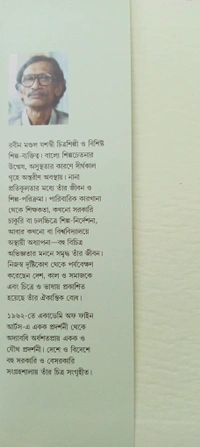 রবীন মণ্ডল যশস্বী চিত্রশিল্পী ও বিশিষ্ট
শিল্প-ব্যক্তিত্ব। বাল্যে শিল্পচেতনার
উন্মেষ, অসুস্থতার কারণে দীর্ঘকাল
গৃহে অন্তরীণ অবস্থায়। নানা
প্রতিকূলতার মধ্যে তাঁর জীবন ও
শিল্প-পরিক্রমা। পারিবারিক কারখানা
থেকে শিক্ষকতা, কখনো সরকারি
চাকুরি বা চলচ্চিত্রে শিল্প-নির্দেশনা,
আবার কখনো বা বিশ্ববিদ্যালয়ে
অস্থায়ী অধ্যাপনা—বহু বিচিত্র
অভিজ্ঞতার মননে সমৃদ্ধ তাঁর জীবন।
নিজস্ব দৃষ্টিকোণ থেকে পর্যবেক্ষণ
করেছেন দেশ, কাল ও সমাজকে
এবং চিত্রে ও ভাষায় প্রকাশিত
হয়েছে তাঁর ঐকান্তিক বোধ।
১৯৬২-তে একাডেমি অফ ফাইন
আর্টস-এ একক প্রদর্শনী থেকে
অদ্যাবধি অর্ধশতপ্রায় একক ও
যৌথ প্রদর্শনী। দেশে ও বিদেশে
বহু সরকারি ও বেসরকারি
সংগ্রহশালায় তাঁর চিত্র সংগৃহীত।